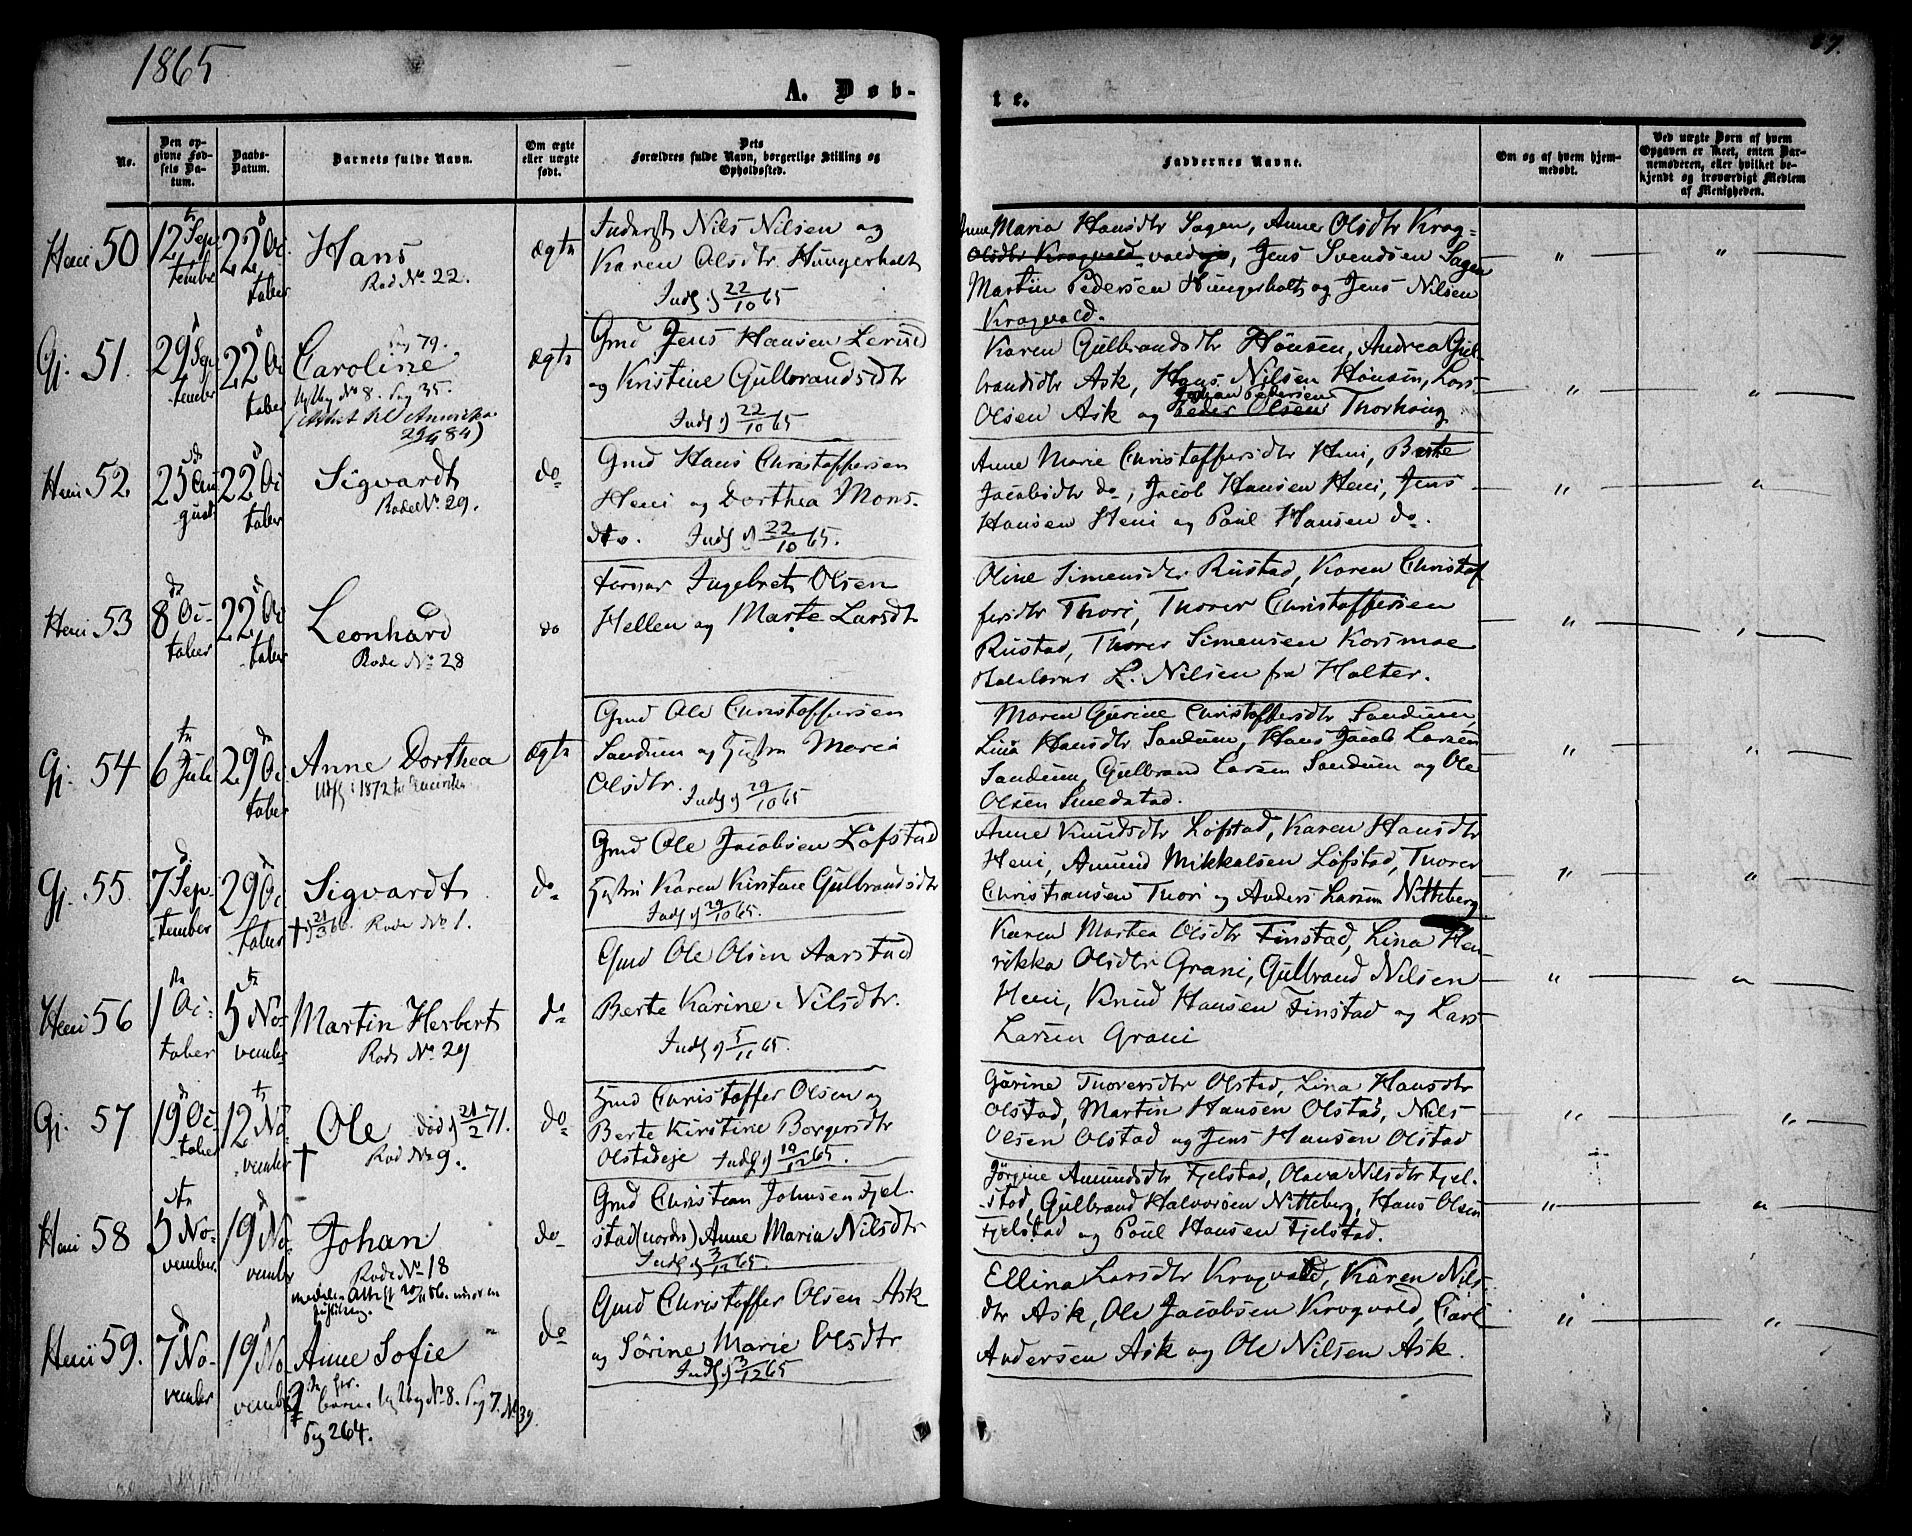 1865
A. Døb-
te.
No.
Den op-
givne Fød-
sels Da-
tum.
Daabs-
Datum.
Barnets fulde Navn.
Om ægte
eller uægte
født.
Dets
Forældres fulde Navn, borgerlige Stilling og
Opholdssted.
Faddernes Navne.
Om og af hvem hjem-
medøbt.
Ved uægte Børn af hvem
Opgaven er skeet, enten Bar-
nemoderen, eller hvilket be-
kjendt og troværdigt Medlem
af Menigheden.
Heni 50
12 Sep
tembr
22 Oc
tober
Hans
Rode No 22.
ægte
Inderst Nils Nilsen og
Karen Olsdtr. Hungerholt
Inds g 22/10 65
Anne Maria Hansdtr Sagen, Anne Olsdtr Krog-
Olsdtr Krogvold voldeje, Jens Svendsen Sagen
Martin Pedersen Hungerholt og Jens Nilsen
Krogvold.
Gj. 51.
29 Sep
tember
22 Oc
tober
Pag 79.
Caroline
No 8. Pag 35.
(Attest til Amerika
29/4 84)
ægte
Gmd Jens Hansen
og Kristine Gulbrandsdtr
Inds g 22/10 65
Karen Gulbrandsdtr Hønsen, Andrea Gul-
brandsdtr Ask, Hans Nilsen Hønsen, Lars
Johan Pedersen
Olsen Ask og Peder Olsen Thorhoug
Heni 52.
25 Au
gust
22 Oc
tober
Sigvardt
Rode No 29.
do
Gmd Hans Christoffersen
Heni og Dorthea Mons-
dtr. Inds g 22/10 65.
Anne Marie Christoffersdtr Heni, Berte
Jacobsdtr do, Jacob Hansen Heni, Jens
Hansen Heni og Poul Hansen do.
Heni 53
8 Oc-
tober
22 Oc
tober
Leonhard
Rode No 28
do
Ingebret Olsen
Hellen og Marte Larsdtr
Oline Simensdtr Rustad, Karen Christof
fersdtr Thori, Thorer Christoffersen
Rustad, Thorer Simensen Korsmoe
L. Nilsen fra Holter.
Gj. 54
6 Juli
29 Oc
tober
Anne Dorthea
Udfl. i 1872 til Amerika
ægte
Gmd Ole Christoffersen
Sandum og Hustru Maria
Olsdtr. Inds g 29/10 65
Maren Gurine Christoffersdtr Sandum,
Lina Hansdtr Sandum, Hans Jacob Larsen
Sandum, Gulbrand Larsen Sandum og Ole
Olsen Smedstad.
Gj. 55.
7 Sep
tember
29 Oc
tober
Sigvardt
† 21/3 66. Rode No 1.
do
Gmd Ole Jacobsen Løfstad
Hustru Karen Kirstine Gulbrandsdtr
Inds g 29/10 65.
Anne Knudsdtr Løfstad, Karen Hansdtr
Heni, Amund Mikkalsen Løfstad, Thorer
Christiansen Thori og Anders Larsen Nitteberg
Heni 56
1 Oc-
tober
5 No-
vember
Martin Herbert
Rode No 29
do
Gmd Ole Olsen Aarstad
Berte Karine Nilsdtr.
Inds g 5/11 65.
Karen Martea Olsdtr Finstad, Lina Hen
rikka Olsdtr Grani, Gulbrand Nilsen
Heni, Knud Hansen Finstad og Lars
Larsen Grani
Gj. 57
19 Oc-
tober
12 No-
vember
Ole død g 21/2 71.
† Rod No 9.
do
Hmd Christoffer Olsen og
Berte Kirstine Borgersdtr
Olstadeje Inds g 19/12 65.
Gurine Thorersdtr Olstad, Lina Hansdtr
Olstad, Martin Hansen Olstad, Nils
Olsen Olstad og Jens Hansen Olstad
Heni 58
5 No-
vember
19 No-
vember
Johan
Rode No 18
do
Gmd Christian Johnsen Fjel-
stad (nordre) Anne Maria Nilsdtr
Inds g 3/12 65.
Jørgine Amundsdtr Fjelstad, Olava Nilsdtr Fjel-
stad, Gulbrand Halvorsen Nitteberg, Hans Olsen
Fjelstad og Poul Hansen Fjelstad.
Heni 59.
7 No-
vember
19 No
vember
Anne Sofie
No 8. Pag 7. No 39.
Pag 264.
do
Gmd Christoffer Olsen Ask
og Sørine Marie Olsdtr
Inds g 3/12 65
Ellina Larsdtr Krogvold, Karen Nils-
dtr Ask, Ole Jacobsen Krogvold, Carl
Andersen Ask og Ole Nilsen Ask.